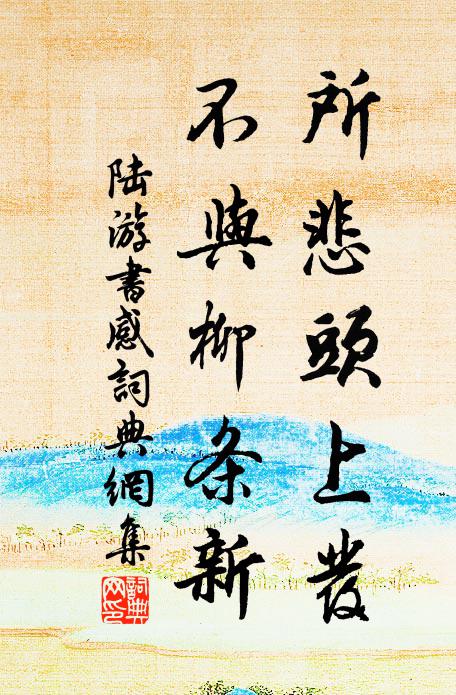 所悲頭上髮
不與柳条新
陆游書感詞典網集
詞典